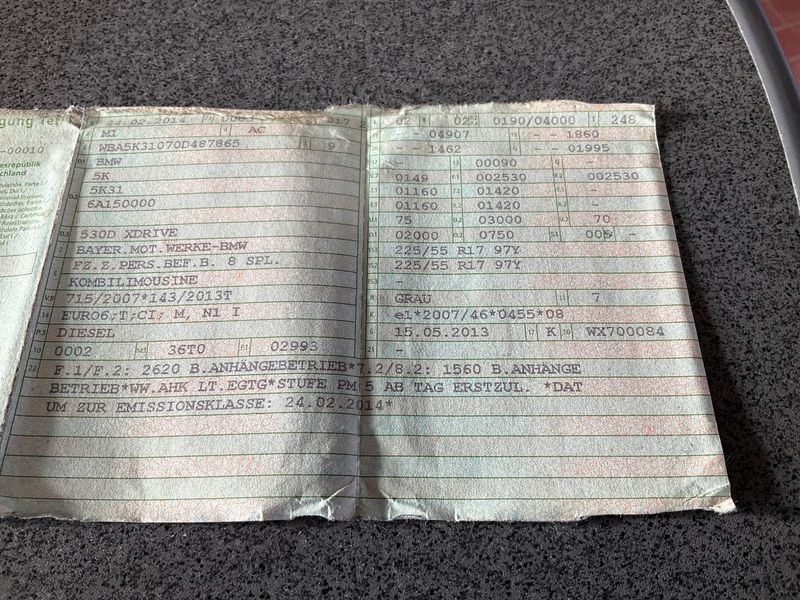 gung Te
-00010
esrepublik
chland
24.02.2014 0005 017 02 02 0190/04000 248
M1 AC - - 04907 - - 1860
WBA5K31070D487865 9 - - 1462 - - 01995
BMW - 00090 -
5K 0149 002530 002530
5K31 01160 01420 -
6A150000 01160 01420 -
75 03000 70 -
530D XDRIVE 02000 0750 005 -
BAYER.MOT.WERKE-BMW 225/55 R17 97Y
FZ.Z.PERS.BEF.B. 8 SPL. 225/55 R17 97Y
KOMBILIMOUSINE -
715/2007*143/2013T GRAU 7
EURO6;T;CI; M, N1 I e1*2007/46*0455*08
DIESEL 15.05.2013 17 K WX700084
10 0002 36T0 02993 21 -
22 F.1/F.2: 2620 B.ANHÄNGEBETRIEB*7.2/8.2: 1560 B.ANHÄNGE
BETRIEB*WW.AHK LT.EGTG*STUFE PM 5 AB TAG ERSTZUL. *DAT
UM ZUR EMISSIONSKLASSE: 24.02.2014*